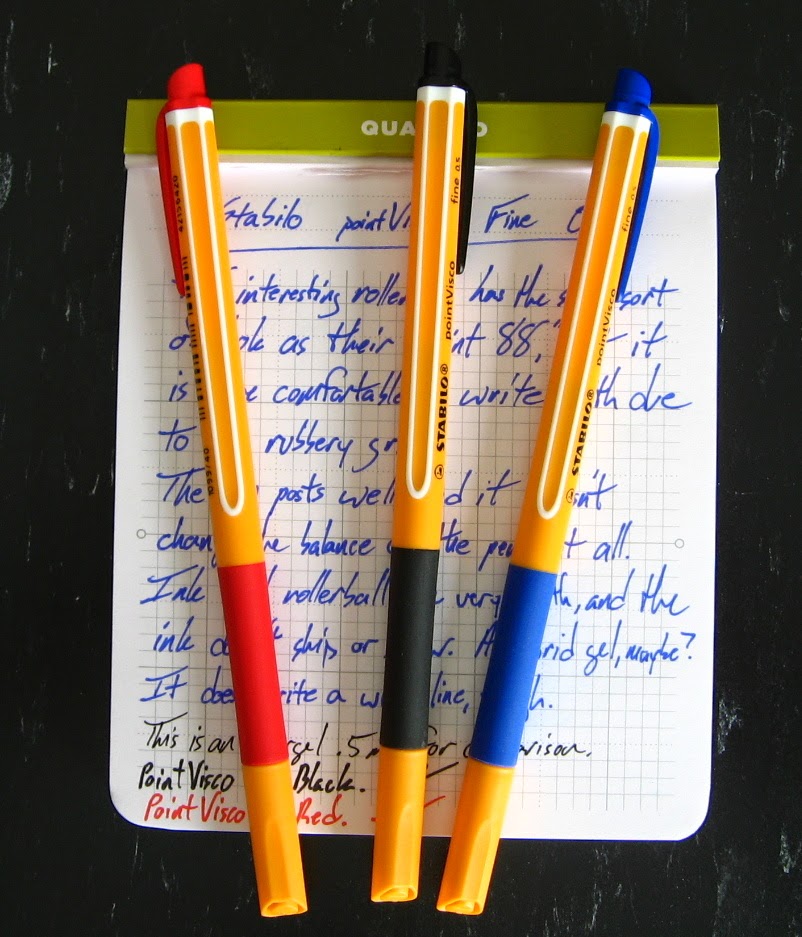 QUA O
Stabilo pointVi Fine
interesting roller has the sort
as their nt 88, it
is comfortable write th due
to rubbery gr
The posts well d it sn't
chang he balance the pen t all.
Ink rollerball very th, and the
ink skip or w. A rid gel, maybe?
It does rite a w line, gh.
This is an rgel .5 m for c rison.
Point Visco Black.
Point Visco Red.
42156420
1099/40
fine 0.5
STABILO® pointVisco
fine 0.5
STABILO® pointVisco